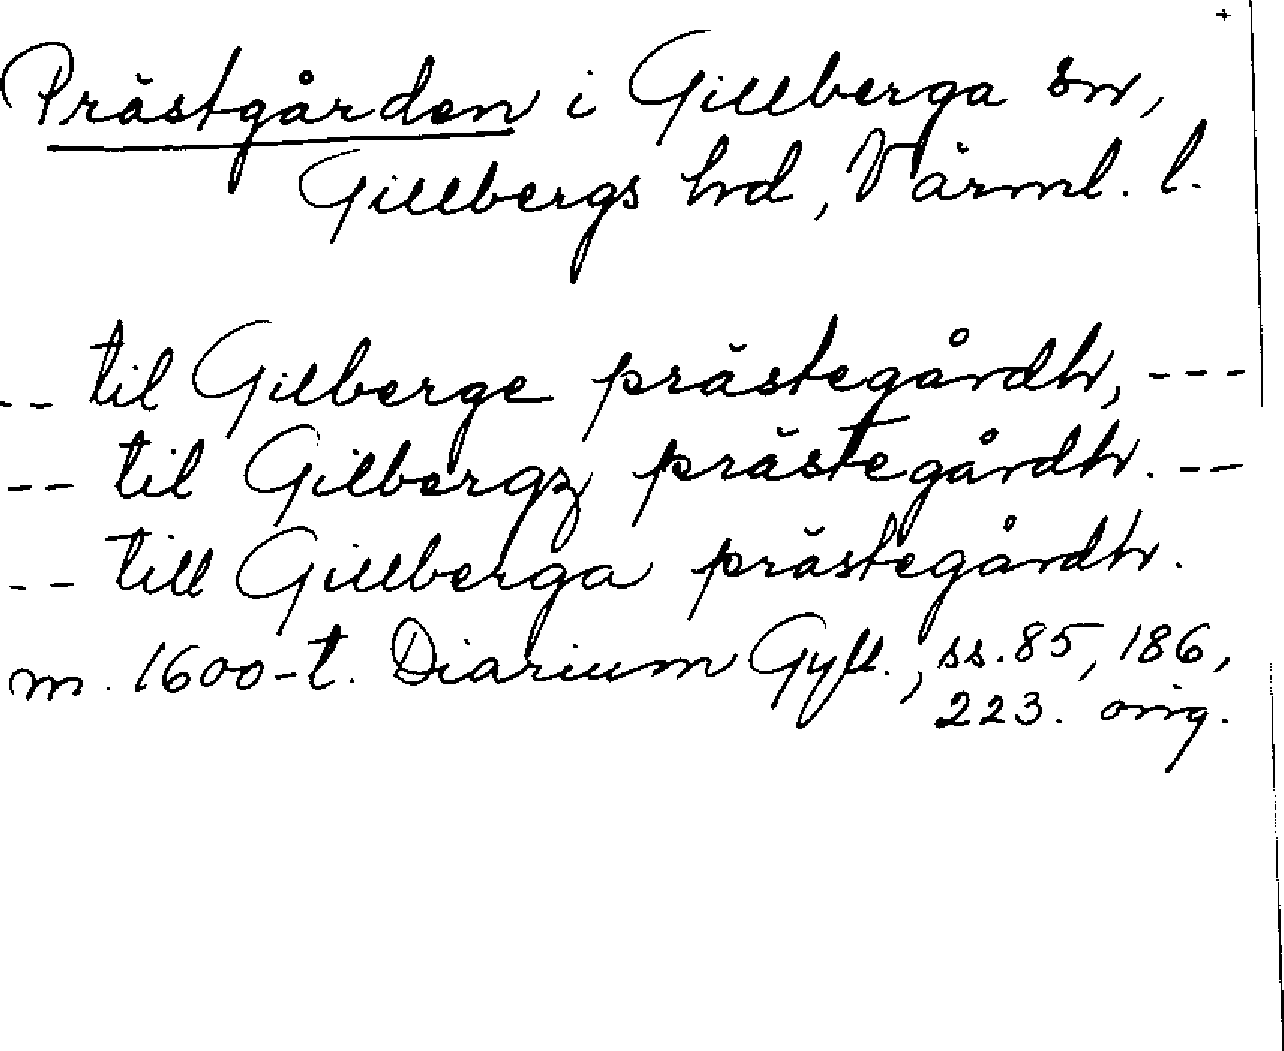 +
Prästgården i Gillberga sn,
Gillbergs hd, Värml. l.
-- til Gilberge prästegårdh, ---
-- til Gilbergz prästegårdh. --
-- till Gillberga prästegårdh.
m. 1600-t. Diarium Gyll., ss. 85, 186,
223. orig.